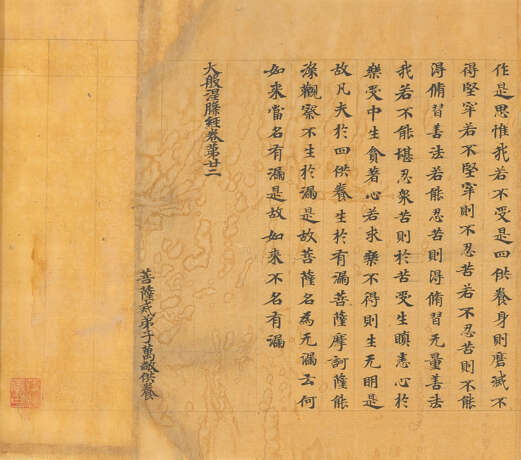 作是思惟我若不受是四供養身則磨滅不
得堅牢若不堅牢則不忍苦若不忍苦則不能
得脩習善法若能忍苦則得脩習无量善法
我若不能堪忍衆苦則於苦受生瞋恚心於
樂受中生貪著心若求樂不得則生无明是
故凡夫於四供養生於有漏菩薩摩訶薩能
深觀察不生於漏是故菩薩名為无漏云何
如來當名有漏是故如來不名有漏
大般涅槃經卷第廿三
菩薩戒弟子萬敵供養